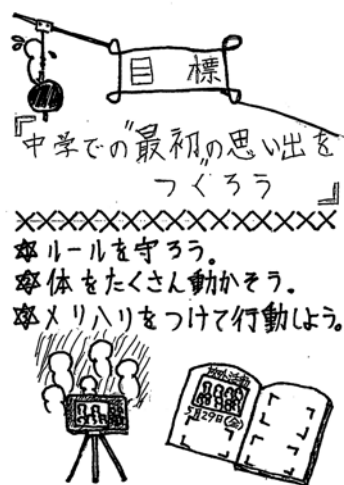 目標
『中学での"最初"の思い出を
つくろう』
✡ルールを守ろう。
✡体をたくさん動かそう。
✡メリハリをつけて行動しよう。
校外活動
5月29日(金)